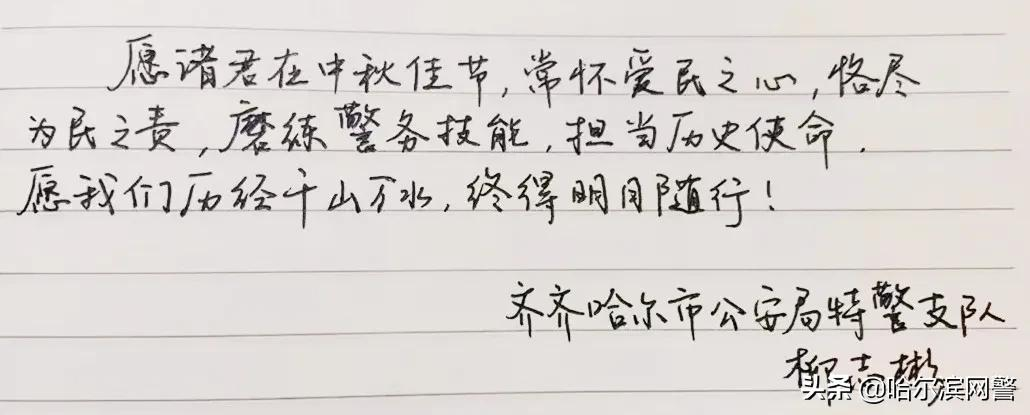 愿诸君在中秋佳节，常怀爱民之心，恪尽
为民之责，磨练警务技能，担当历史使命．
愿我们历经千山万水，终得明月随行！
齐齐哈尔市公安局特警支队
柳志彬
头条 @哈尔滨网警